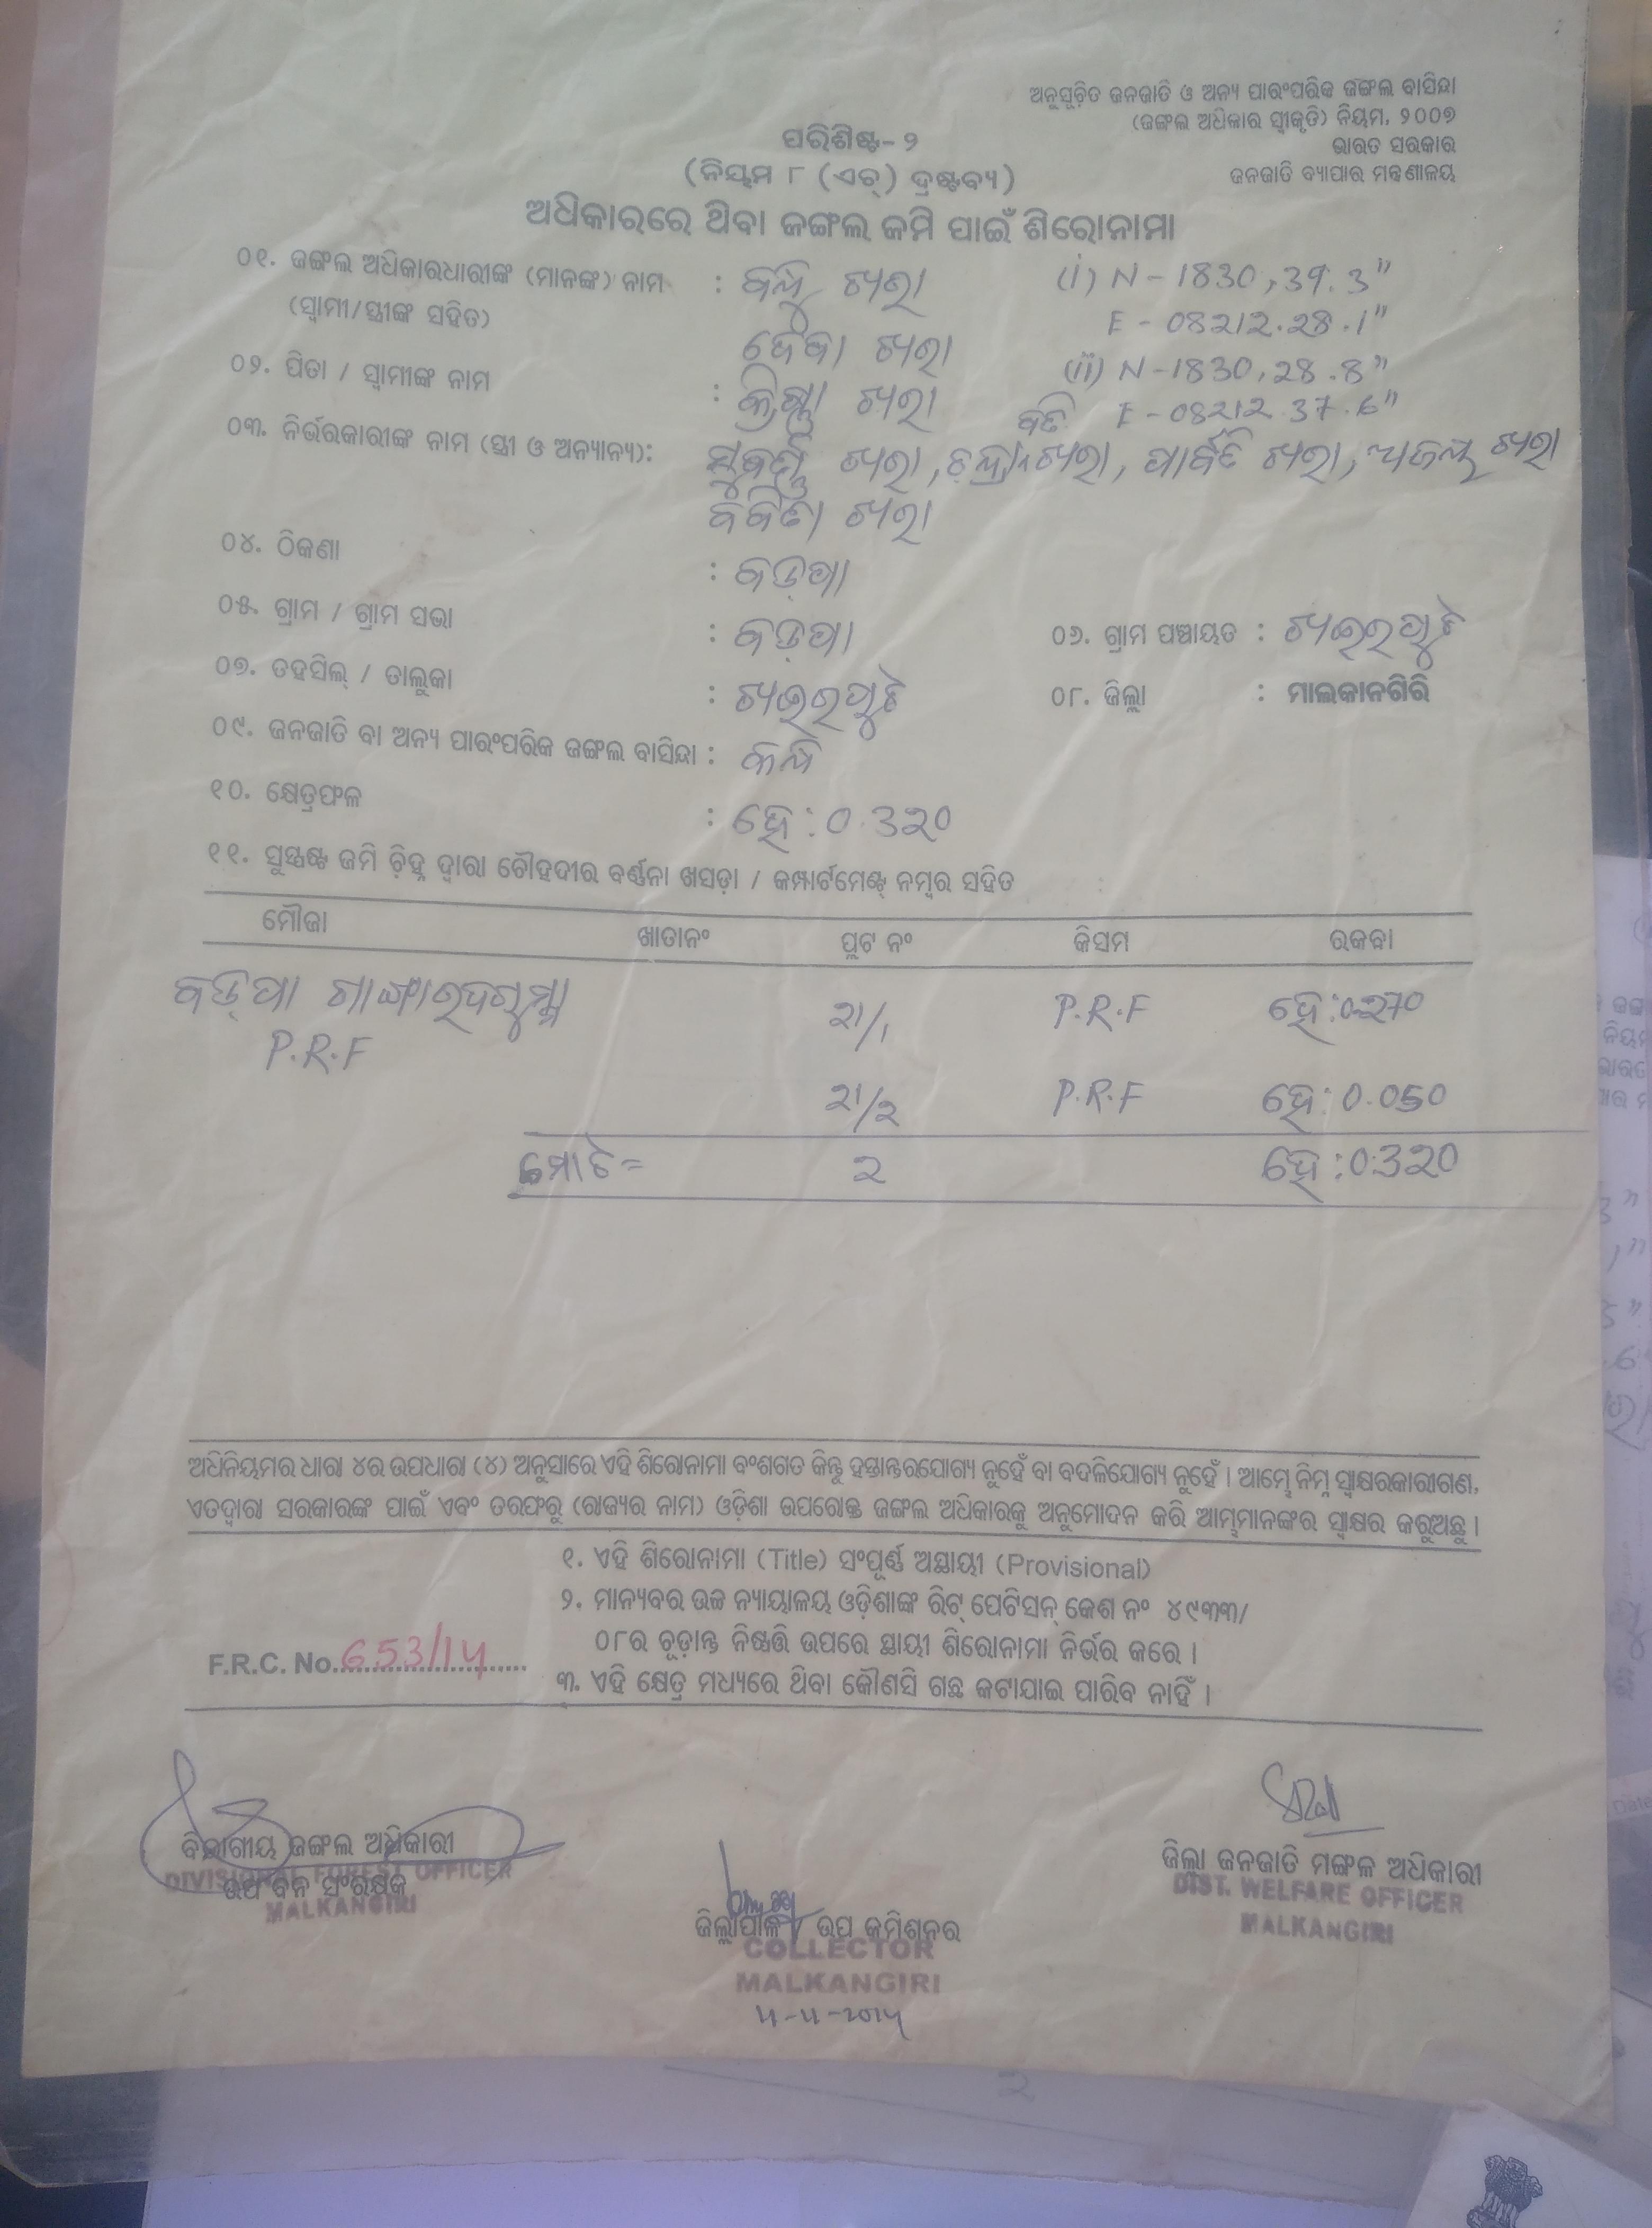 ଅନୁସୂଚିତ ଜନଜାତି ଓ ଅନ୍ୟ ପାରଂପରିକ ଜଙ୍ଗଲ ବାସିନ୍ଦା
(ଜଙ୍ଗଲ ଅଧିକାର ସ୍ୱୀକୃତି) ନିୟମ, ୨୦୦୭
ଭାରତ ସରକାର
ଜନଜାତି ବ୍ୟାପାର ମନ୍ତ୍ରଣାଳୟ
ପରିଶିଷ୍ଟ- ୨
(ନିୟମ ୮ (ଏଚ୍) ଦ୍ରଷ୍ଟବ୍ୟ)
ଅଧିକାରରେ ଥିବା ଜଙ୍ଗଲ ଜମି ପାଇଁ ଶିରୋନାମା
୦୧. ଜଙ୍ଗଲ ଅଧିକାରଧାରୀଙ୍କ (ମାନଙ୍କ) ନାମ : ଖରା (i) N - 1830, 39.3"
(ସ୍ୱାମୀ/ସ୍ତ୍ରୀଙ୍କ ସହିତ) ଖରା E - 08212.28.1"
୦୨. ପିତା / ସ୍ୱାମୀଙ୍କ ନାମ : କ୍ରିଷ୍ଣା ଖରା (ii) N - 1830, 28.8"
E - 08212.37.6"
୦୩. ନିର୍ଭରକାରୀଙ୍କ ନାମ (ସ୍ତ୍ରୀ ଓ ଅନ୍ୟାନ୍ୟ): ଖରା, ଖରା, ପାର୍ବତି ଖରା, ଖରା
କବିତା ଖରା
୦୪. ଠିକଣା : ବଡ଼ପା
୦୫. ଗ୍ରାମ / ଗ୍ରାମ ସଭା : ବଡ଼ପା ୦୬. ଗ୍ରାମ ପଞ୍ଚାୟତ : ଖଇରପୁଟ
୦୭. ତହସିଲ୍ / ତାଲୁକା : ଖଇରପୁଟ ୦୮. ଜିଲ୍ଲା : ମାଲକାନଗିରି
୦୯. ଜନଜାତି ବା ଅନ୍ୟ ପାରଂପରିକ ଜଙ୍ଗଲ ବାସିନ୍ଦା :
୧୦. କ୍ଷେତ୍ରଫଳ : ହେ: 0.320
୧୧. ସୁସ୍ପଷ୍ଟ ଜମି ଚିହ୍ନ ଦ୍ୱାରା ଚୌହଦୀର ବର୍ଣ୍ଣନା ଖସଡ଼ା / କମ୍ପାର୍ଟମେଣ୍ଟ ନମ୍ବର ସହିତ
ମୌଜା ଖାତାନଂ ପ୍ଲଟ ନଂ କିସମ ରକବା
ବଡ଼ପା 21/1 P.R.F ହେ: 0.270
P.R.F
21/2 P.R.F ହେ: 0.050
ମୋଟ = 2 ହେ: 0.320
ଅଧିନିୟମର ଧାରା ୪ର ଉପଧାରା (୪) ଅନୁସାରେ ଏହି ଶିରୋନାମା ବଂଶଗତ କିନ୍ତୁ ହସ୍ତାନ୍ତରଯୋଗ୍ୟ ନୁହେଁ ବା ବଦଳିଯୋଗ୍ୟ ନୁହେଁ । ଆମ୍ଭେ ନିମ୍ନ ସ୍ୱାକ୍ଷରକାରୀଗଣ,
ଏତଦ୍ୱାରା ସରକାରଙ୍କ ପାଇଁ ଏବଂ ତରଫରୁ (ରାଜ୍ୟର ନାମ) ଓଡ଼ିଶା ଉପରୋକ୍ତ ଜଙ୍ଗଲ ଅଧିକାରକୁ ଅନୁମୋଦନ କରି ଆମ୍ଭମାନଙ୍କର ସ୍ୱାକ୍ଷର କରୁଅଛୁ ।
୧. ଏହି ଶିରୋନାମା (Title) ସଂପୂର୍ଣ୍ଣ ଅସ୍ଥାୟୀ (Provisional)
୨. ମାନ୍ୟବର ଉଚ୍ଚ ନ୍ୟାୟାଳୟ ଓଡ଼ିଶାଙ୍କ ରିଟ୍ ପେଟିସନ୍ କେଶ ନଂ ୪୯୩୩/
୦୮ର ଚୂଡ଼ାନ୍ତ ନିଷ୍ପତ୍ତି ଉପରେ ସ୍ଥାୟୀ ଶିରୋନାମା ନିର୍ଭର କରେ ।
F.R.C. No. 653/14
୩. ଏହି କ୍ଷେତ୍ର ମଧ୍ୟରେ ଥିବା କୌଣସି ଗଛ କଟାଯାଇ ପାରିବ ନାହିଁ ।
ବିଭାଗୀୟ ଜଙ୍ଗଲ ଅଧିକାରୀ
ଉପ ବନ ସଂରକ୍ଷକ
DIVISIONAL FOREST OFFICER
MALKANGIRI
ଜିଲ୍ଲାପାଳ / ଉପ କମିଶନର
COLLECTOR
MALKANGIRI
ଜିଲ୍ଲା ଜନଜାତି ମଙ୍ଗଳ ଅଧିକାରୀ
DIST. WELFARE OFFICER
MALKANGIRI